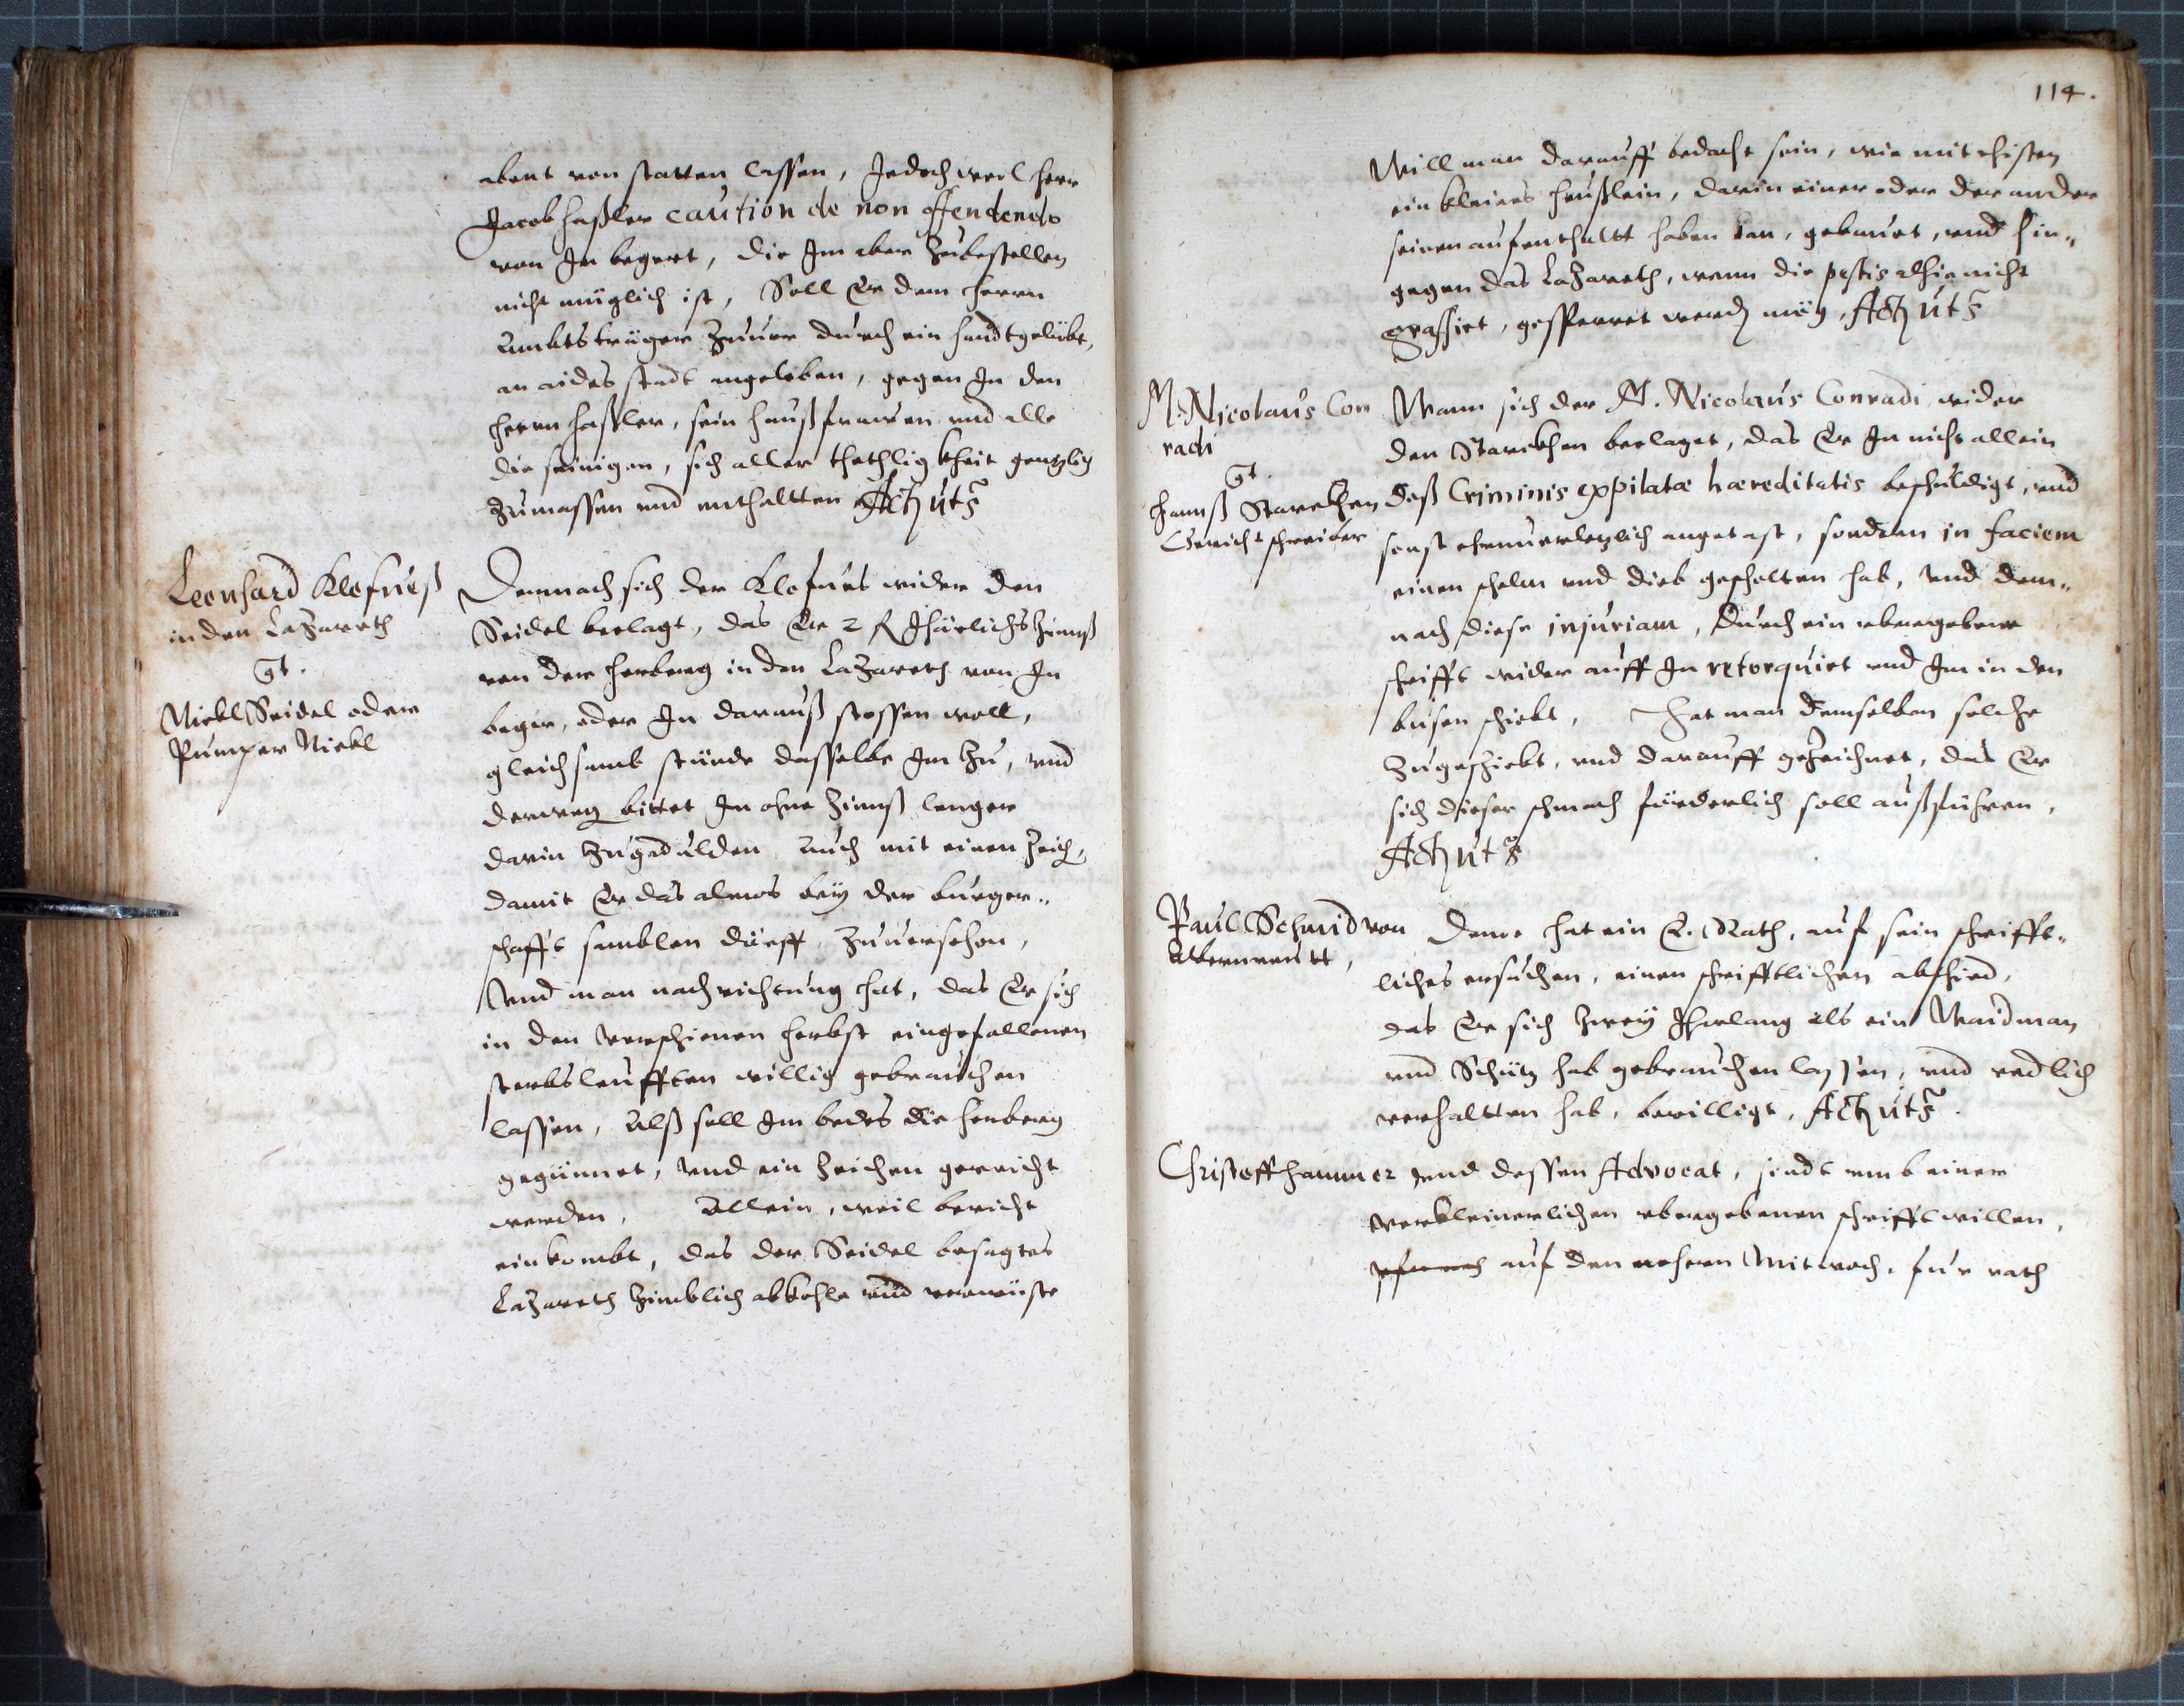 abent von statten lassen, Jedoch weil herr
Jacob Haßler caution de non offendendo
von Jm begert, die Jm aber zubestellen
nicht müglich ist, Soll Er dem herrn
Ambtstrager zuuor durch ein handtgelübt,
an aides stadt angeloben, gegen Jn den
herrn Haßler, sein haußfrawen und alle
die seinigen, sich aller thathligkheit gentzlich
zumassen und enthaltten Act. ut s.
Leonhard Klofueß
in den Lazareth
Ct.
Nickl Seidel oder
Pumper Nickl
Demnach sich der Klofues wider den
Seidel beclagt, das Er 2 fl Jhärlichs Zinnß
von der herberg in den Lazareth von Jm
beger, oder Jn darauß stossen woll,
gleichsamb stünde dasselbe Jm zu, und
derweg bittet Jn ohne Zinnß lenger
darin zugedulden Auch mit einen Zeich,
damit Er das almos bey der burger„
schafft samblen dürff, zuuersehen,
Und man nachrichtung hat, das Er sich
in den verschienen herbst eingefallenen
sterbsleufften willig gebrauchen
lassen, Alß soll Jm bedes die herberg
gegünnet, und ein Zeichen gereicht
werden, Allein, weil bericht
einkombt, das der Seidel besagtes
Lazareth zimblich abkohle und verwüste
114.
Will man darauff bedacht sein, wie mit ehisten
ein kleines heußlein, darin einer oder der ander
seinen aufenthaltt haben kan, gebauet, und hin„
gegen das Lazareth, wann die pestis alhie nicht
grassiet, gesperret werdn mög, Act. ut s.
M. Nicolaus Con
radi
Ct.
Hannß Starckhen
Gerichtschreiber
Wann sich der M. Nicolaus Conradi wider
den Starckhen beclaget, das Er Jn nicht allein
deß Criminis expilatæ hæreditatis beschuldigt, und
sonst ehrnuerletzlich angetast, sondern in faciem
einen schelm und dieb gescholten hab, und dem„
nach diese injuriam, durch ein ubergebene
schrifft wider auff Jn retorquiet und Jm in den
busen schiebt, Hat man demselben solche
zugeschickt, und darauff gezeichnet, das Er
sich dieser schmach fürderlich soll außführen,
Act. ut s.
Paul Schmid von
Deme hat ein E. Rath, auf sein schrifft„
liches ersuchen, einen schrifftlichen abschied,
das Er sich zwey Jharlang als ein Waidman
und Schütz hab gebrauchen lassen, und redlich
verhaltten hab, bewilligt, Act. ut s.
Christoff Hammer und dessen Advocat, sindt umb einer
verkleinerlichen ubergebenen schrifft willen,
auf den nehern Mitwoch, für rath